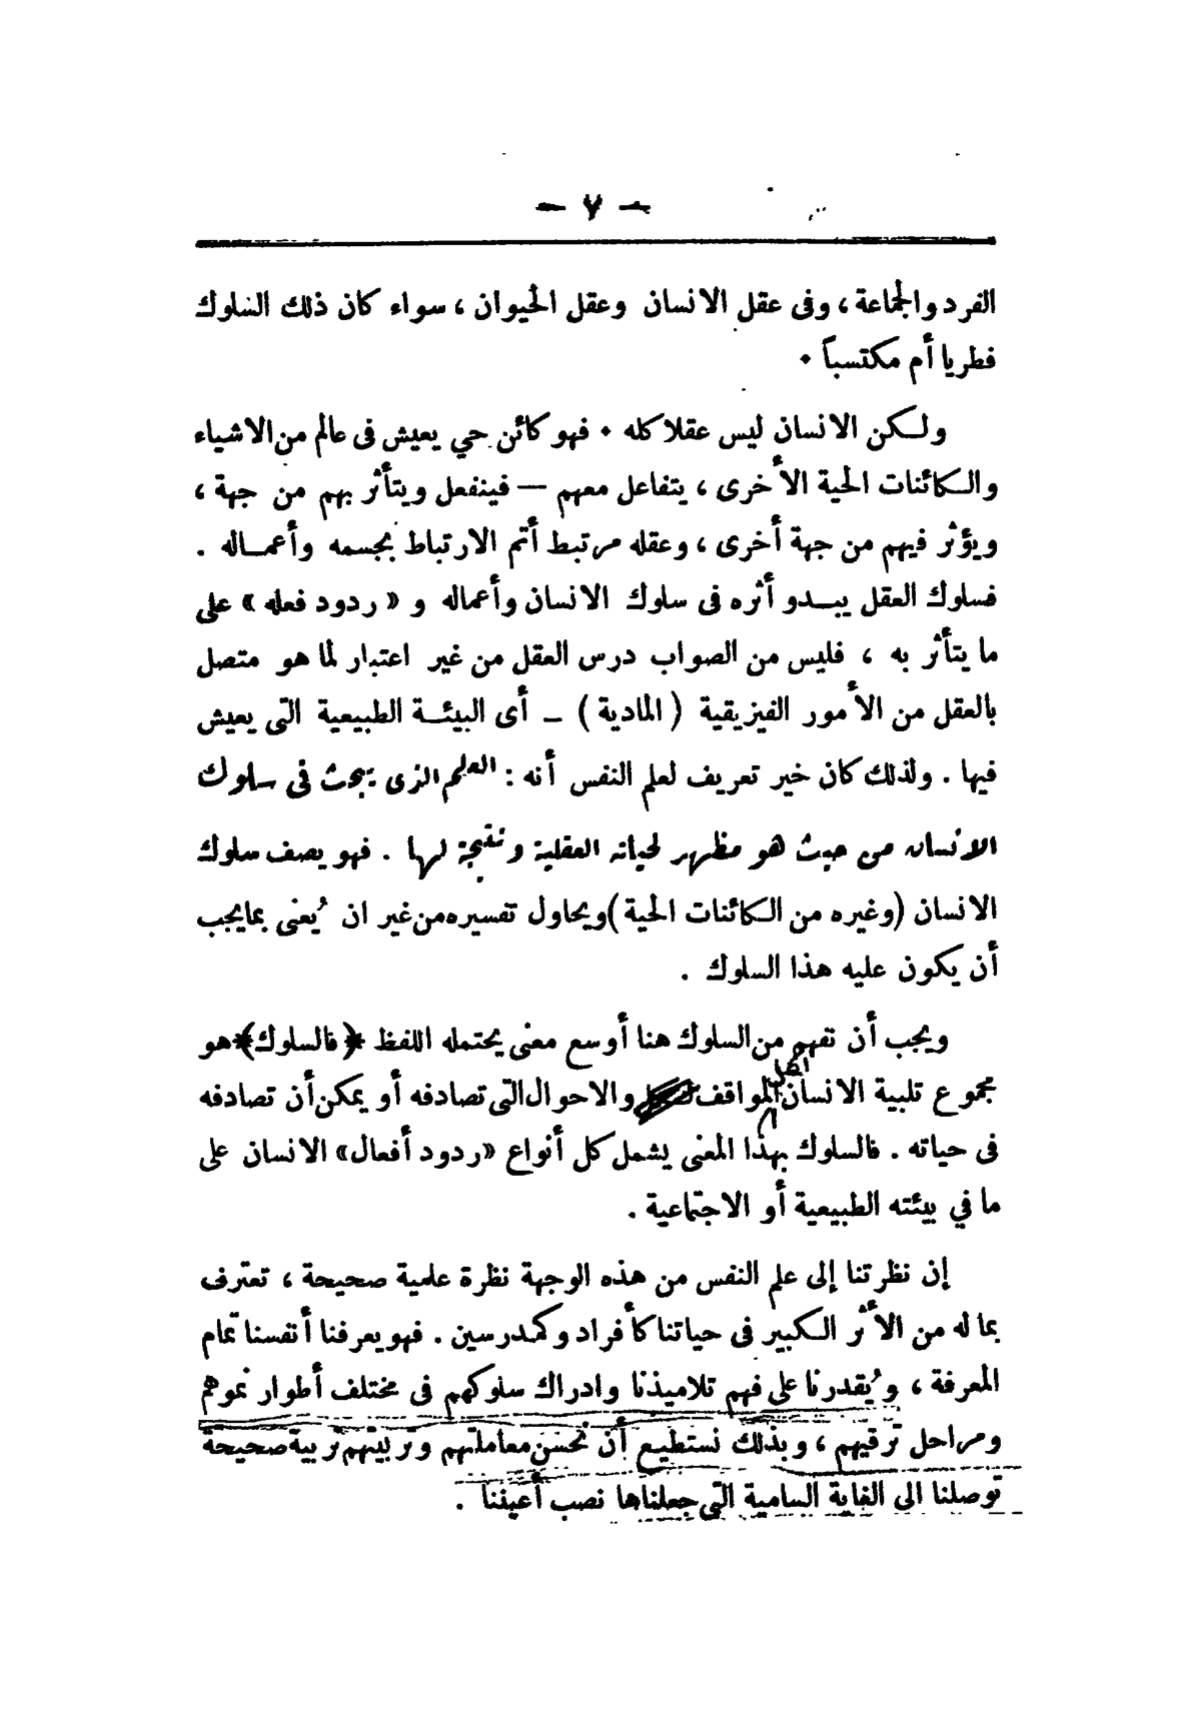 — ٧ —
الفرد والجماعة ، وفى عقل الانسان وعقل الحيوان ، سواء كان ذلك السلوك
فطريا أم مكتسباً .
ولكن الانسان ليس عقلا كله . فهو كائن حي يعيش فى عالم من الاشياء
والكائنات الحية الأخرى ، يتفاعل معهم — فينفعل ويتأثر بهم من جهة ،
ويؤثر فيهم من جهة أخرى ، وعقله مرتبط أتم الارتباط بجسمه وأعماله .
فسلوك العقل يبدو أثره فى سلوك الانسان وأعماله و « ردود فعله » على
ما يتأثر به ، فليس من الصواب درس العقل من غير اعتبار لما هو متصل
بالعقل من الأمور الفيزيقية ( المادية ) – أى البيئة الطبيعية التى يعيش
فيها . ولذلك كان خير تعريف لعلم النفس أنه : العلم الذى يبحث فى سلوك
الانسان من حيث هو مظهر لحياته العقلية ونتيجة لها . فهو يصف سلوك
الانسان (وغيره من الكائنات الحية) ويحاول تفسيره من غير ان يُعنى بما يجب
أن يكون عليه هذا السلوك .
ويجب أن تفهم من السلوك هنا أوسع معنى يحتمله اللفظ (فالسلوك) هو
مجموع تلبية الانسان لكل المواقف والاحوال التى تصادفه أو يمكن أن تصادفه
فى حياته . فالسلوك بهذا المعنى يشمل كل أنواع «ردود أفعال» الانسان على
ما في بيئته الطبيعية أو الاجتماعية .
إن نظرتنا إلى علم النفس من هذه الوجهة نظرة علمية صحيحة ، تعترف
بما له من الأثر الكبير فى حياتنا كأفراد وكمدرسين . فهو يعرفنا أنفسنا تمام
المعرفة ، ويُقدرنا على فهم تلاميذنا وادراك سلوكهم فى مختلف أطوار نموهم
ومراحل ترقيهم ، وبذلك نستطيع أن نحسن معاملتهم وتربيتهم تربية صحيحة
توصلنا الى الغاية السامية التى جعلناها نصب أعيننا .